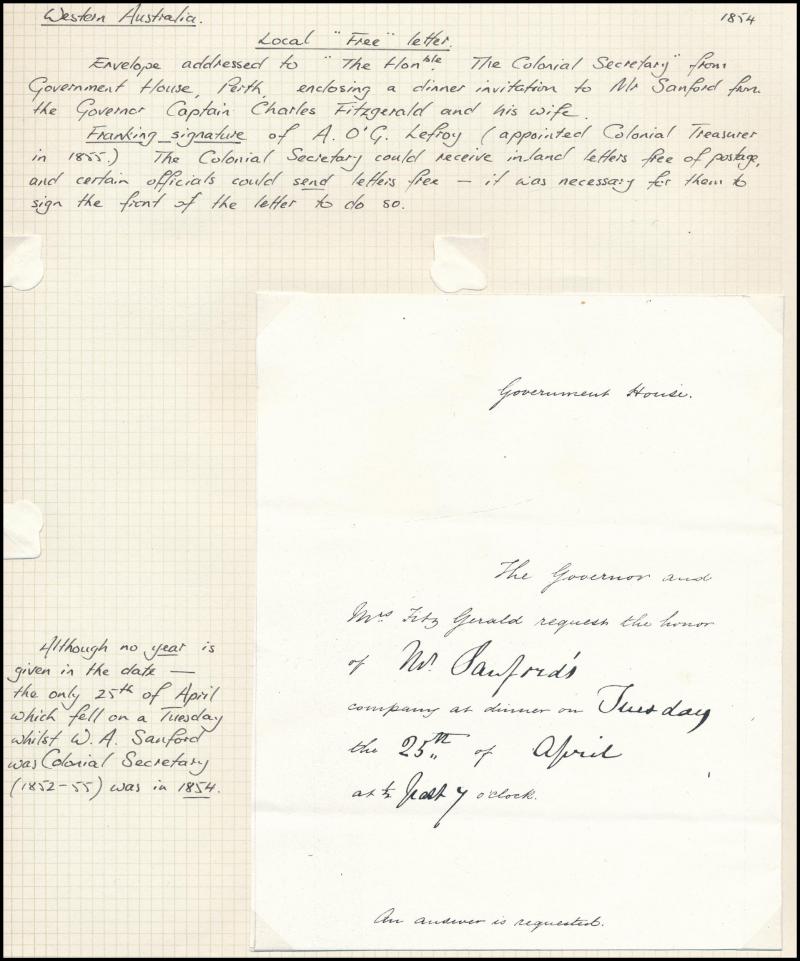 Western Australia.
1854
Local "Free" letter.
Envelope addressed to "The Honble. The Colonial Secretary" from
Government House, Perth, enclosing a dinner invitation to Mr Sanford from
the Governor Captain Charles Fitzgerald and his wife.
Franking signature of A. O'G. Lefroy (appointed Colonial Treasurer
in 1855.) The Colonial Secretary could receive inland letters free of postage,
and certain officials could send letters free — it was necessary for them to
sign the front of the letter to do so.
Government House.
The Governor and
Mrs Fitz Gerald request the honor
of Mr. Sanford's
company at dinner on Tuesday
the 25th of April
at ½ past 7 o'clock.
An answer is requested.
Although no year is
given in the date —
the only 25th of April
which fell on a Tuesday
whilst W. A. Sanford
was Colonial Secretary
(1852-55) was in 1854.